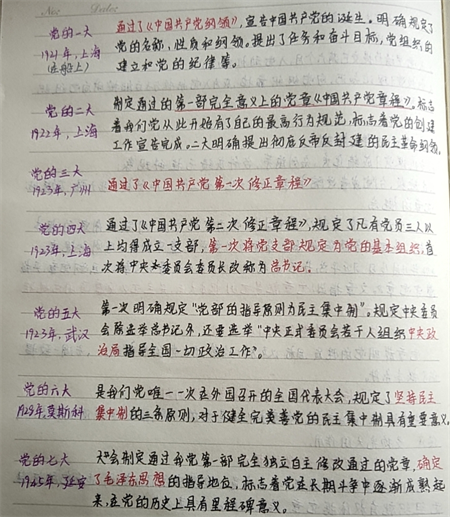 No: Date:
党的一大
1921年,上海
(在船上)
通过了《中国共产党纲领》,宣告中国共产党的诞生。明确规定了
党的名称,性质和纲领。提出了任务和奋斗目标,党组织的
建立和党的纪律等。
党的二大
1922年,上海
制定通过的第一部完全意义上的党章《中国共产党章程》,标志
着我们党从此开始有了自己的最高行为规范,标志着党的创建
工作宣告完成。二大明确提出彻底反帝反封建的民主革命纲领。
党的三大
1923年,广州
通过了《中国共产党第一次修正章程》
党的四大
1923年,上海
通过了《中国共产党第二次修正章程》,规定了凡有党员三人以
上均得成立一支部,第一次将党支部规定为党的基本组织,首
次将中央委员会委员长改称为总书记。
党的五大
1923年,武汉
第一次明确规定"党部的指导原则为民主集中制"。规定中央委员
会除选举总书记外,还要选举"中央正式委员会若干人组织中央政
治局指导全国一切政治工作"。
党的六大
1928年,莫斯科
是我们党唯一一次在外国召开的全国代表大会,规定了坚持民主
集中制的三条原则,对于健全完善党的民主集中制具有重要意义。
党的七大
1945年,延安
大会制定通过我党第一部完全独立自主修改通过的党章,确定
了毛泽东思想的指导地位,标志着党在长期斗争中逐渐成熟起
来,在党的历史上具有里程碑意义。